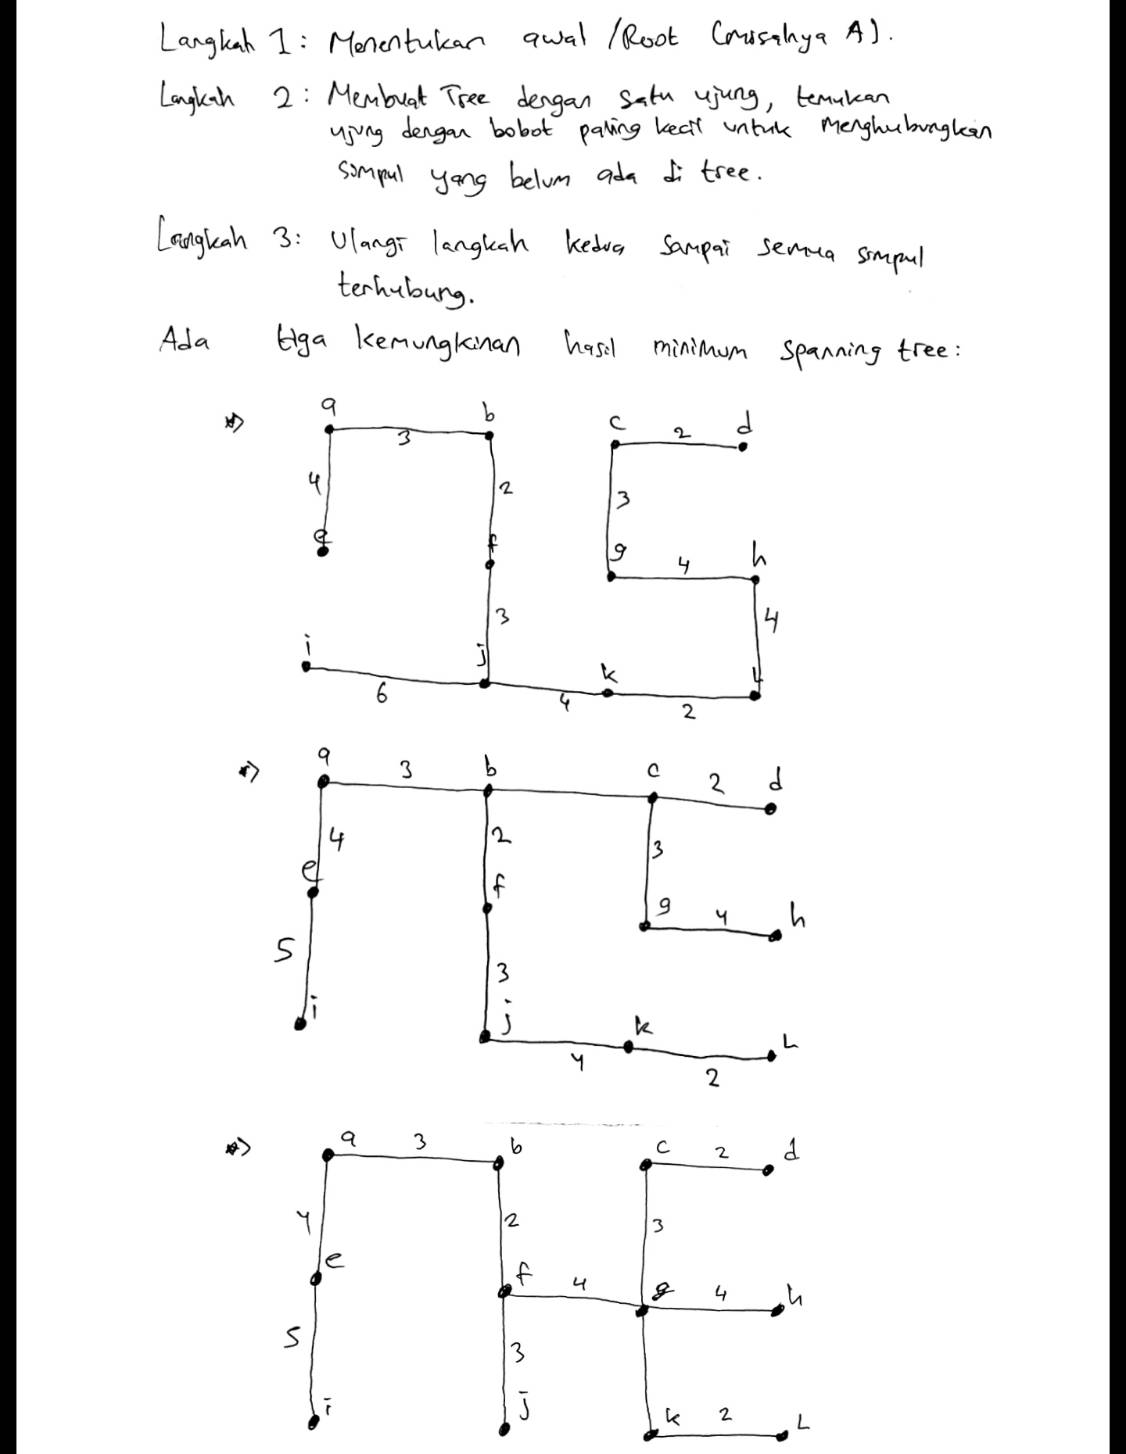 Langkah 1: Menentukan awal /Root (misalnya A).
Langkah 2: Membuat Tree dengan satu ujung, temukan
ujung dengan bobot paling kecil untuk menghubungkan
simpul yang belum ada di tree.
Langkah 3: Ulangi langkah kedua sampai semua simpul
terhubung.
Ada tiga kemungkinan hasil minimum spanning tree:
a 3 b c 2 d
4 2 3
e f g 4 h
3 4
i 6 j 4 k 2 L
a 3 b c 2 d
4 2 3
e f g 4 h
5 3
i j 4 k 2 L
a 3 b c 2 d
4 2 3
e f 4 g 4 h
5 3
i j k 2 L